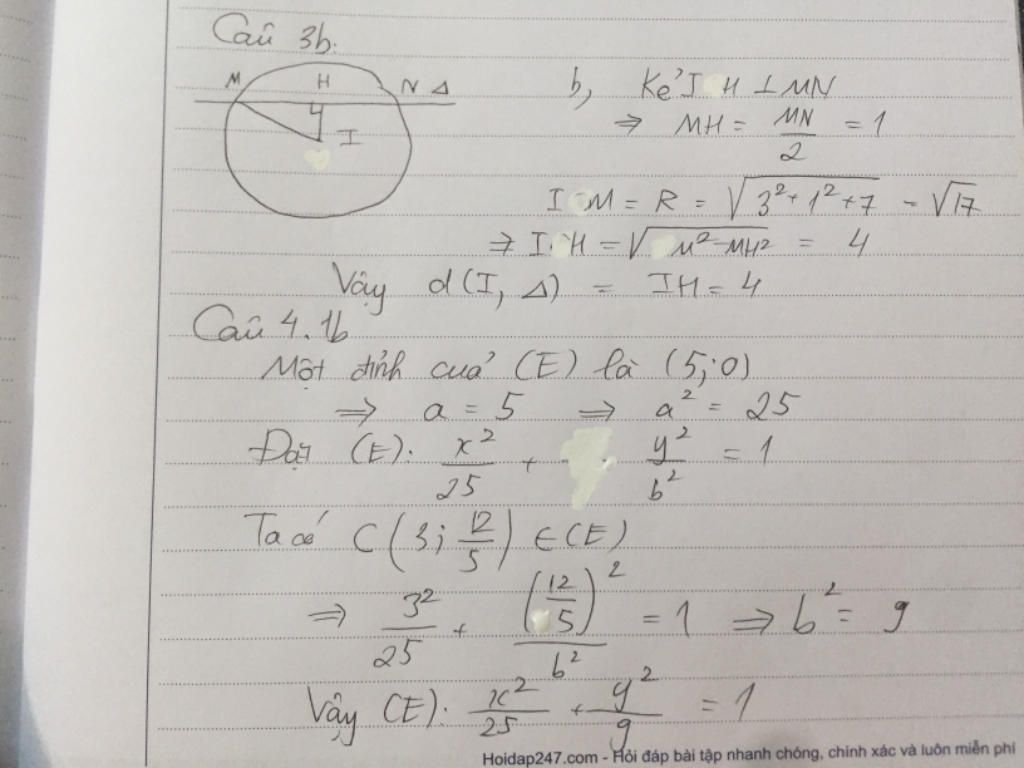 Câu 3b.
M H N Δ
I
b, Kẻ IH ⊥ MN
⇒ MH = MN/2 = 1
IM = R = √(3²+1²+7) = √17
⇒ IH = √(M²-MH²) = 4
Vậy d(I, Δ) = IH = 4
Câu 4.1b
Một đỉnh cuả (E) là (5;0)
⇒ a = 5 ⇒ a² = 25
Đặt (E): x²/25 + y²/b² = 1
Ta có C(3; 12/5) ∈ (E)
⇒ 3²/25 + (12/5)²/b² = 1 ⇒ b² = 9
Vậy (E): x²/25 + y²/9 = 1
Hoidap247.com - Hỏi đáp bài tập nhanh chóng, chính xác và luôn miễn phí